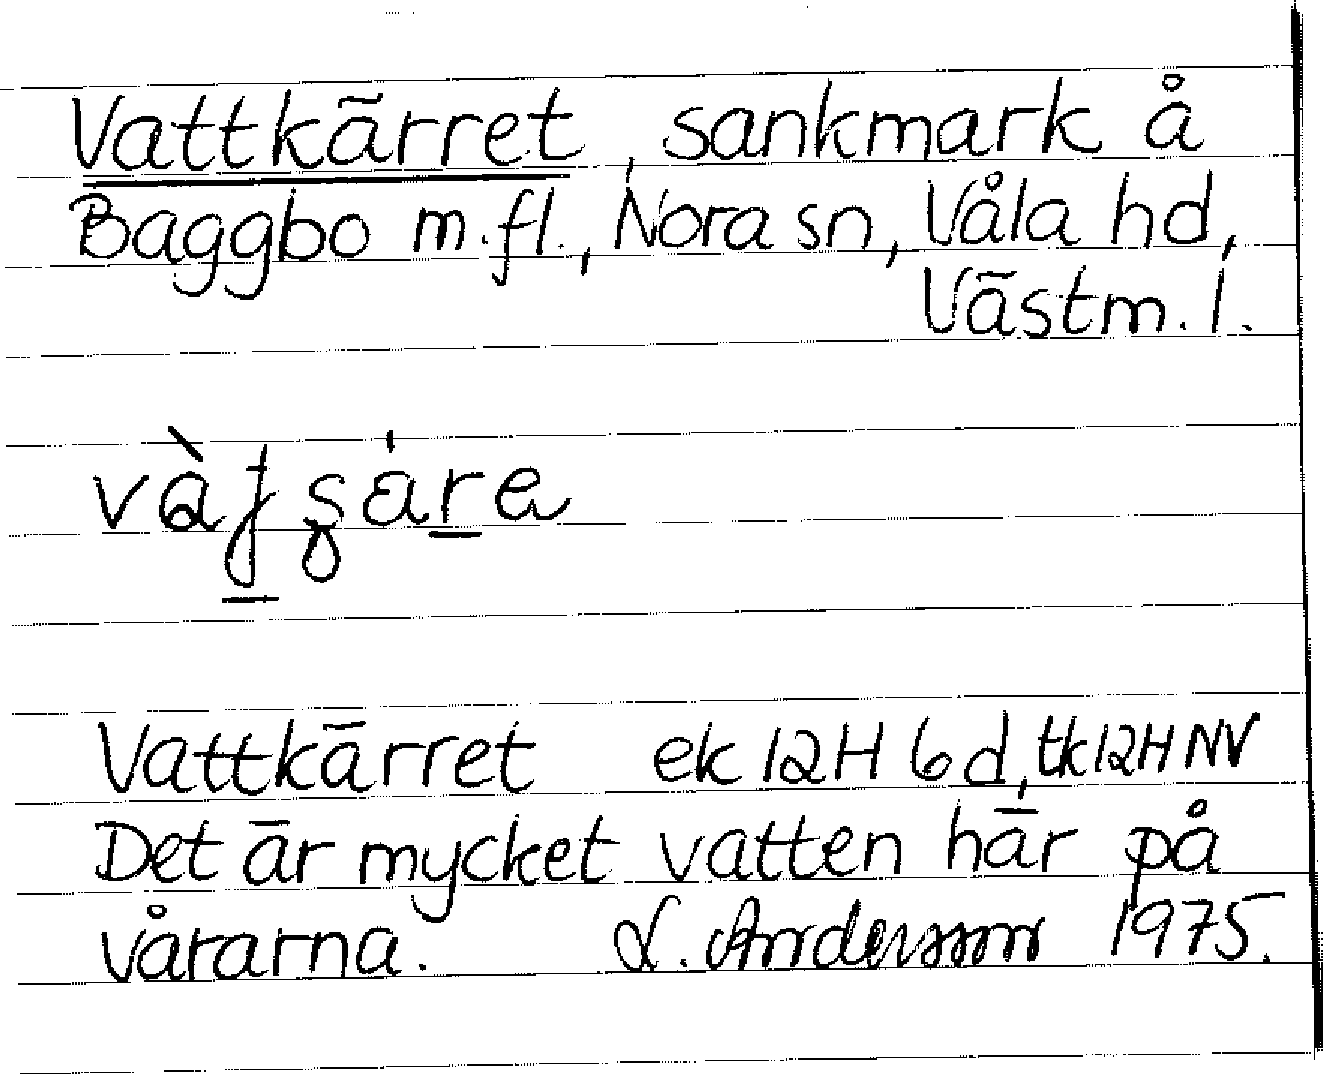 Vattkärret, sankmark å
Baggbo m.fl., Nora sn, Våla hd,
Västm. l.
Vattkärret ek 12H 6d, tk12HNV
Det är mycket vatten här på
vårarna. L. Andersson 1975.